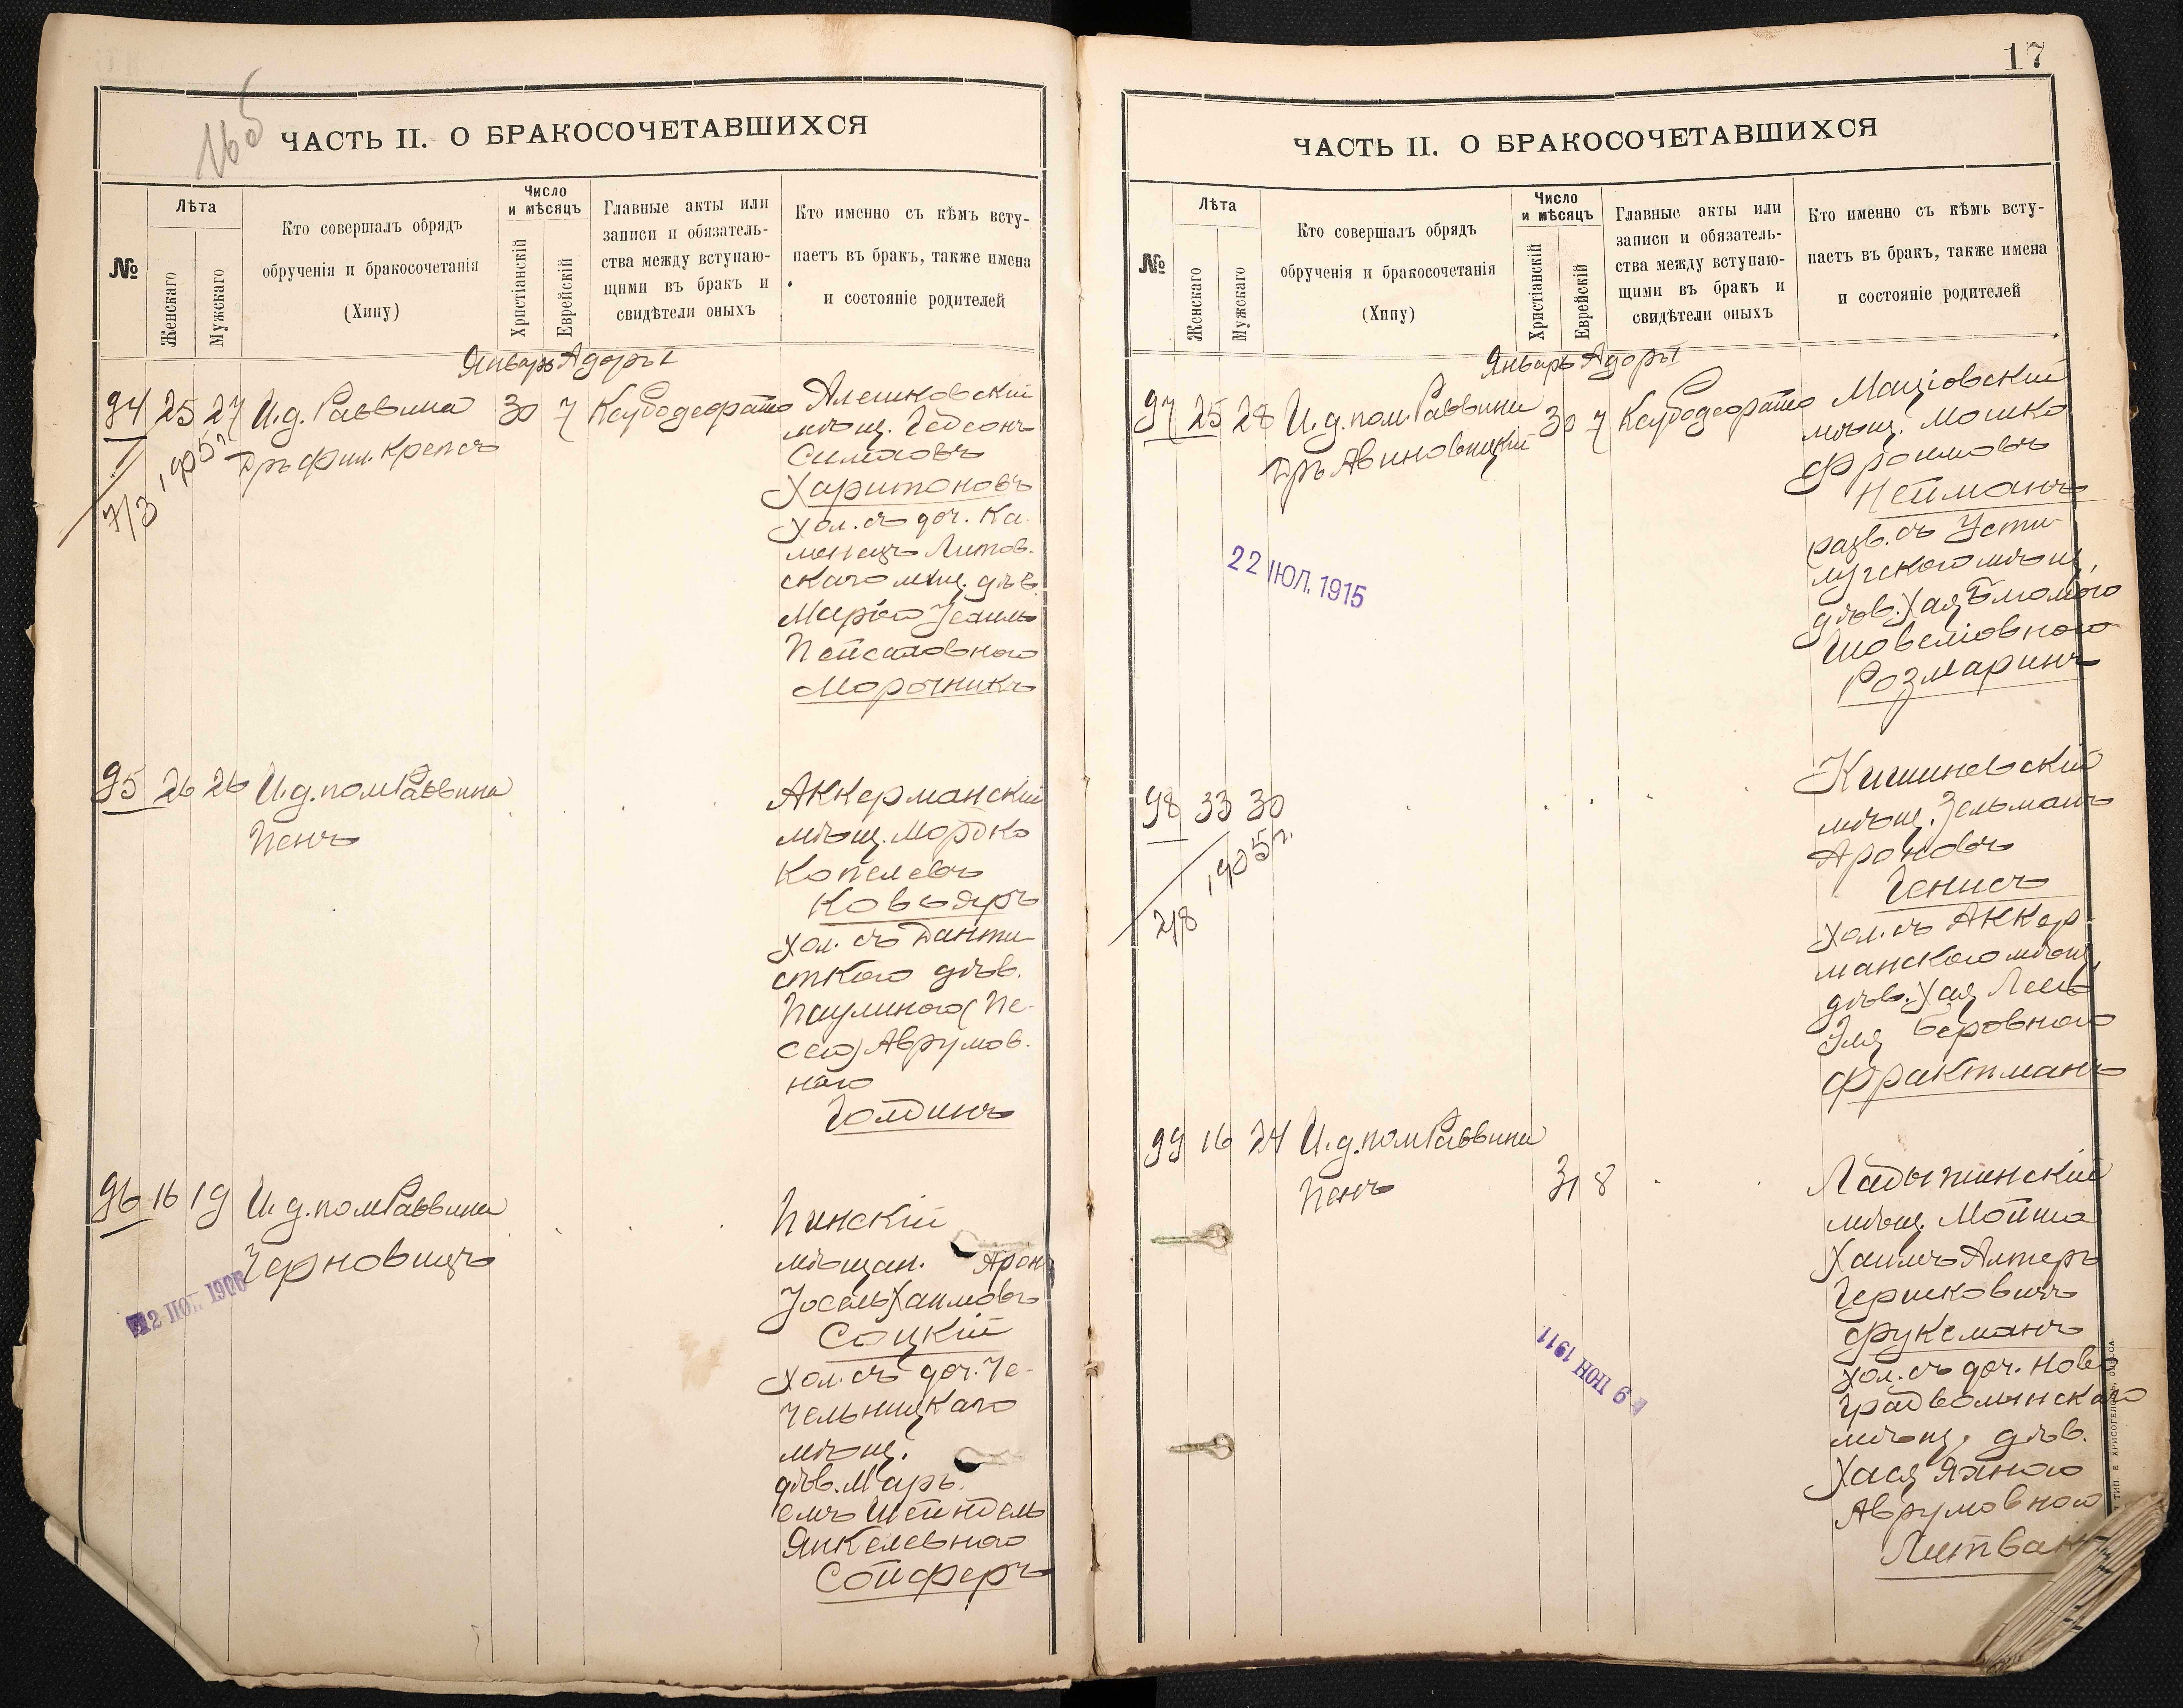 16об
ЧАСТЬ II. О БРАКОСОЧЕТАВШИХСЯ
№
Лѣта
Женскаго
Мужскаго
Кто совершалъ обрядъ
обрученія и бракосочетанія
(Хипу)
Число
и мѣсяцъ
Христіанскій
Еврейскій
Главные акты или
записи и обязатель-
ства между вступаю-
щими въ бракъ и
свидѣтели оныхъ
Кто именно съ кѣмъ всту-
паетъ въ бракъ, также имена
и состояніе родителей
Январь Адоръ I
94 25 27 И.д. Раввина 30 7
Дръ фил. Крепсъ
7/3 1905 г.
Алешковскій
мѣщ. Гедсонъ
Симховъ
Харитоновъ
хол. съ доч. Ка-
менецъ Литов-
скаго мѣщ. дѣв.
Пейсаховною
Морочникъ
95 26 26 И.д. пом Раввина
Пенъ
Аккерманскій
мѣщ. Мордко
Копелевъ
Ковьяръ
хол. съ Данти-
сткою дѣв.
Паулиною (Пе-
сею) Аврумов-
ною
Голдинъ
96 16 19 И.д. пом Раввина
Черновицъ
12 1906
Пинскій
мѣщан. Аронъ
Іосель Хаимовъ
Соцкій
хол. съ доч. Че-
чельницкаго
мѣщ.
дѣв. Марь-
емъ Шейндель
Янкелевною
Сойферъ
17
ЧАСТЬ II. О БРАКОСОЧЕТАВШИХСЯ
№
Лѣта
Женскаго
Мужскаго
Кто совершалъ обрядъ
обрученія и бракосочетанія
(Хипу)
Число
и мѣсяцъ
Христіанскій
Еврейскій
Главные акты или
записи и обязатель-
ства между вступаю-
щими въ бракъ и
свидѣтели оныхъ
Кто именно съ кѣмъ всту-
паетъ въ бракъ, также имена
и состояніе родителей
Январь Адоръ I
97 25 28 И.д. пом. Раввина 30 7
Дръ Авиновицкій
22 ІЮЛ. 1915
Маціовскій
мѣщ. Мошко
Фроимовъ
Нейманъ
разв. съ Усти-
лугскою мѣщ,
дѣв. Хая Блюмою
Шовеліовною
Розмаринъ
98 33 30
2/8 1905 г.
Кишиневскій
мѣщ. Зельманъ
Ароновъ
Генисъ
хол. съ Аккер-
манскою мѣщ,
дѣв. Хая Лея
Эля Беровною
Фрактманъ
99 16 24 И.д. пом Раввина
Пенъ
31 8
9 ІЮН 1911
Ладыжинскій
мѣщ. Мойше
Хаимъ Алтеръ
Гершковичъ
Фуксманъ
хол. съ доч. Ново
градволынскаго
мѣщ, дѣв.
Хася Яхною
Аврумовною
Литвакъ